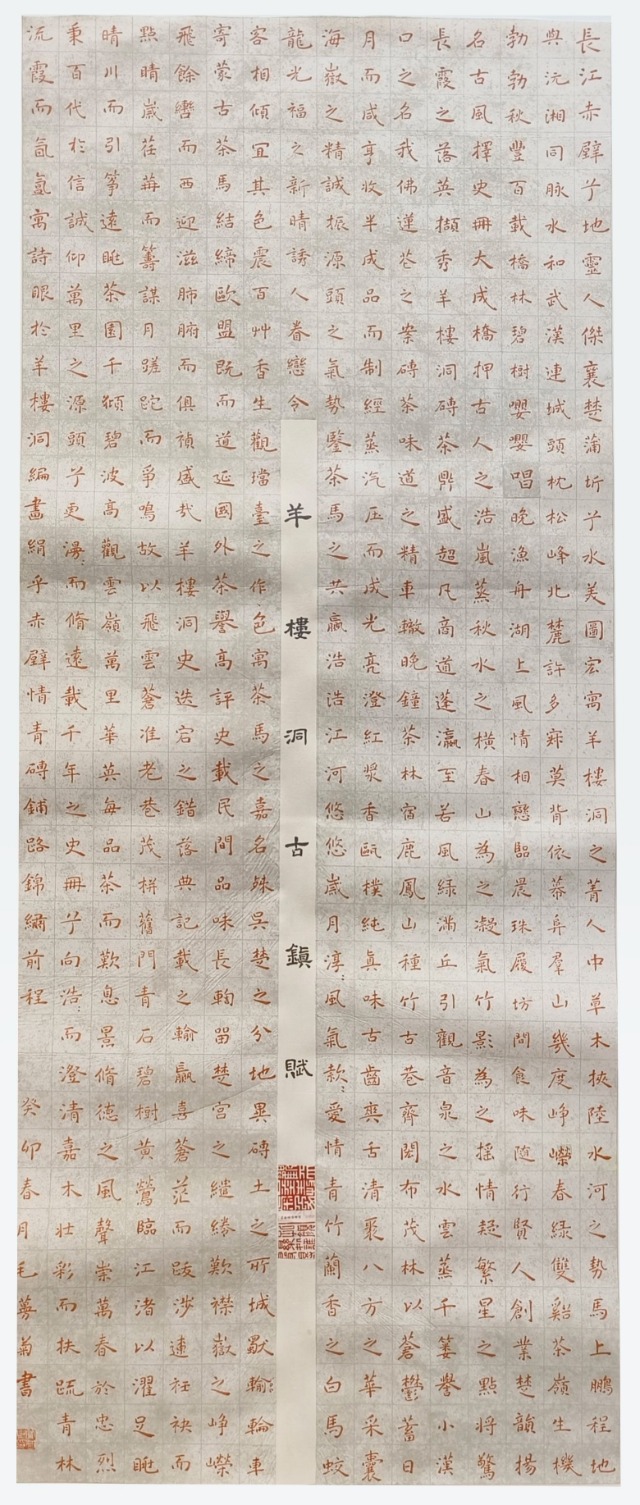 長江赤壁兮地靈人傑襄楚蒲圻兮水美圖宏寓羊樓洞之菁人中草木挾陸水河之勢馬上鵬程地
與沅湘同脉水和武漢連城頭枕松峰北麓許多寂寞背依幕阜羣山幾度崢嶸春綠雙谿茶嶺生機
勃勃秋豐百載橋林碧樹嚶嚶唱晚漁舟湖上風情相戀點晨珠履坊問食味隨行賢人創業楚韻揚
名古風擇史冊大成橋押古人之浩嵐蒸秋水之橫春山為之凝氣竹影為之搖情趣繁星之點將驚
長霞之落英擷秀羊樓洞磚茶鼎盛超凡高道蓬瀛至若風綠滿丘引觀音泉之水雲蒸千簍譽小漢
口之名我佛蓮花之案磚茶味道之精車轍晚鐘茶林宿鹿鳳山種竹古巷齊閣布茂林以蒼鬱蓄日
月而咸亨收半成品而制經蒸汽压而成光亮澄紅漿香甌樸純真味古齒與舌清聚八方之華采囊
海嶽之精誠振源頭之氣勢鑒茶馬之共贏浩浩江河悠悠歲月淳:風氣款:愛情青竹蘭香之白馬蛟
龍光福之新晴誘人眷戀令
羊樓洞古鎮賦
客相傾宜其色震百艸香生觀璫臺之作色寓茶馬之嘉名殊吳楚之分地異磚土之所城猒輸:輪車
寄蒙古茶馬結締歐盟既而道延國外茶譽高評史載民間品味長軔留楚宮之繾綣歎襟嶽之崢嶸
飛餘轡而西迎滋肺腑而俱禎盛哉羊樓洞史迭宕之錯落典記載之輸贏喜蒼茫而跋涉連衽袂而
點晴歲荏苒而籌謀月蹉跎而爭鳴故以飛雲蒼准老巷茂栟舊門青石碧樹黄鶯臨江渚以濯足眺
晴川而引箏遠眺茶園千頃碧波高觀雲嶺萬里華英每品茶而歎息景脩德之風聲崇萬春於忠烈
秉百代於信誠仰萬里之源頭兮更湯:而脩遠載千年之史冊兮向浩:而澄清嘉木壯彩而扶疏青林
流霞而氤氳寓詩眼於羊樓洞編畫絹乎赤壁情青磚鋪路錦繡前程 癸卯春月毛萼菊書